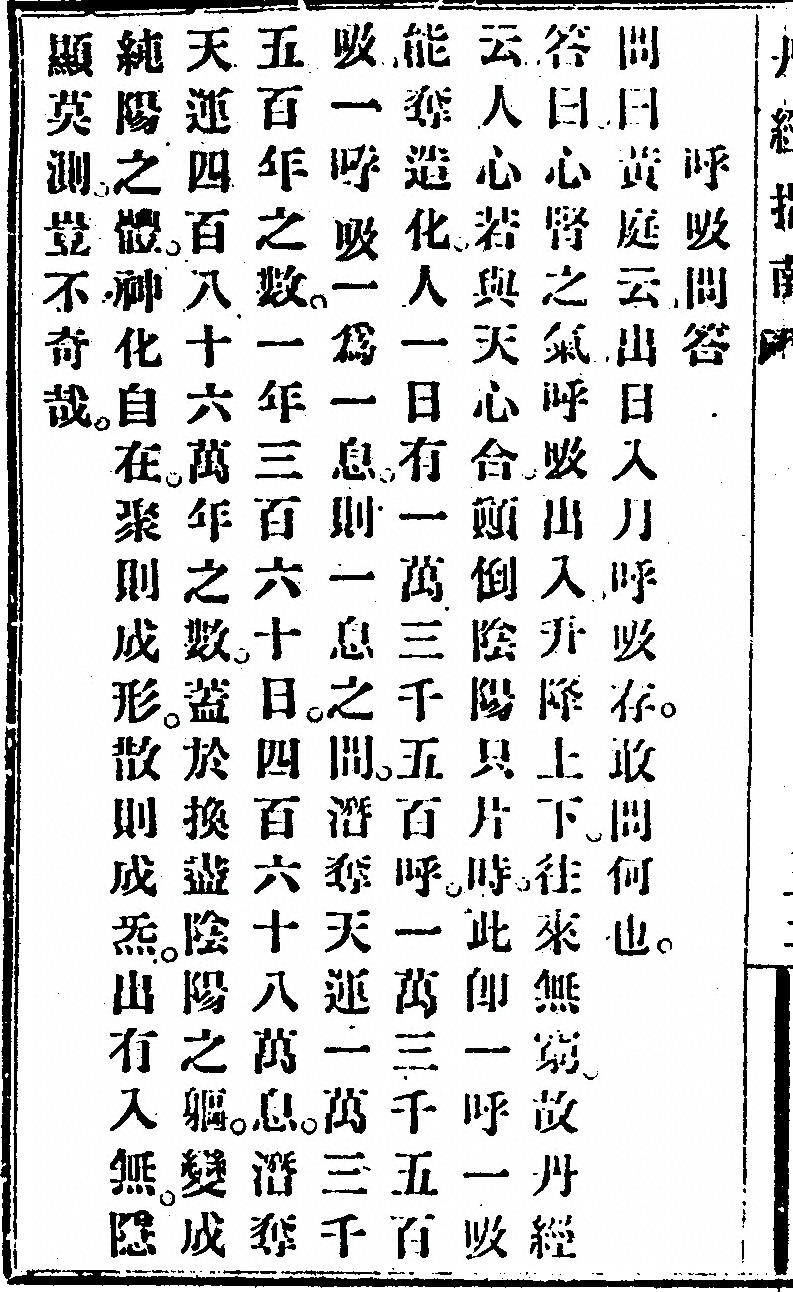 丹經指南
呼吸問答
問曰黃庭云出日入月呼吸存。敢問何也。
答曰心腎之氣呼吸出入升降上下。往來無窮。故丹經
云人心若與天心合。顚倒陰陽只片時。此卽一呼一吸
能奪造化。人一日有一萬三千五百呼。一萬三千五百
吸一呼吸一爲一息。則一息之間。潛奪天運一萬三千
五百年之數。一年三百六十日。四百六十八萬息。潛奪
天運四百八十六萬年之數。蓋於換盡陰陽之軀。變成
純陽之體。神化自在。聚則成形。散則成炁。出有入無。隱
顯莫測。豈不奇哉。